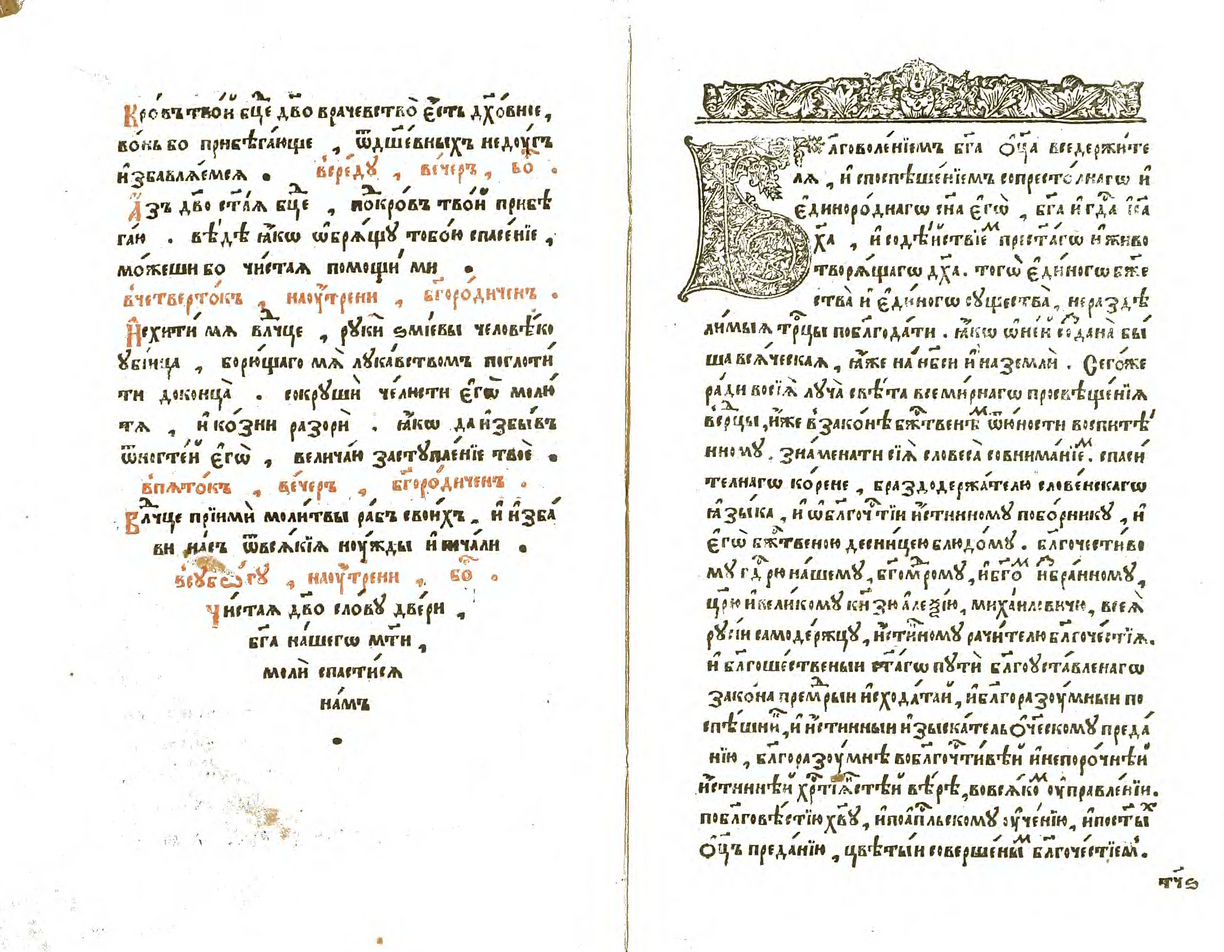 Кро́въ тво́й бц҃е дв҃о врачевство̀ є҆́сть дх҃о́вное,
во́нь бо прибѣга́юще , ѿ дш҃е́вныхъ неду́гъ
и҆збавлѧ́емсѧ . в̾сре́ду , ве́черъ , бо҃ .
А҆́зъ дв҃о ст҃а́ѧ бц҃е , покро́въ тво́й прибѣ
га́ю . вѣ́дѣ ꙗ҆́кѡ ѡ҆брѧ́щу тобо́ю спасе́нїе ,
мо́жеши бо чи́стаѧ помощи́ ми .
в̾четверто́къ , наоу҆́трени , бг҃оро́диченъ .
И҆схити́ мѧ влⷣчце , ру́ки ѕмі́евы человѣко
уби́йца , борю́щаго мѧ̀ лука́вствомъ поглоти́
ти доконца̀ . сокрушѝ че́люсти є҆гѡ̀ молю́
тѧ , и҆ ко́зни разорѝ . ꙗ҆́кѡ да и҆збы́въ
ѿ ногте́й є҆гѡ̀ , велича́ю заступле́нїе твоѐ .
в̾пѧто́къ , ве́черъ , бг҃оро́диченъ .
Влⷣчце прїимѝ моли́твы ра́бъ свои́хъ , и҆ и҆зба́
ви на́съ ѿ всѧ́кїѧ ноу́жды и҆ печа́ли .
в̾субѡ́ту , наоу҆́трени , бо҃ .
Чи́стаѧ дв҃о сло́ву две́ри ,
бг҃а на́шегѡ мт҃и ,
молѝ спасти́сѧ
на́мъ
.
Благоволе́нїемъ бг҃а ѻ҆ц҃а̀ вседержи́те
лѧ , и҆ споспѣше́нїемъ сопресто́лнагѡ и҆
є҆диноро́днагѡ сн҃а є҆гѡ̀ , бг҃а и҆ гдⷭ҇а і҆с҃а
хⷭ҇а , и҆ содѣ́йствїеⷨ прест҃а́гѡ и҆ живо
творѧ́щагѡ дх҃а . тогѡ̀ є҆ди́ногѡ бж҃е
ства̀ и҆ є҆ди́ногѡ существа̀ , нераздѣ
ли́мыѧ трⷪ҇цы поблг҃ода́ти . ꙗ҆́кѡ ѡ҆ не́й созда́на бы́
ша всѧ́ческаѧ , ꙗ҆́же на нб҃си и҆ на землѝ . Сего́же
ра́ди восїѧ̀ луча̀ свѣ́та всеми́рнагѡ просвѣще́нїѧ
в̾се́рⷣцы , и҆́же в̾зако́нѣ бж҃е́ственѣⷨ ѿ ю҆́ности воспитѣ́
нному . зна́менати сїѧ̀ словеса̀ со внима́нїеⷨ . спаси́
телнагѡ ко́рене , браздодержа́телю слове́нскагѡ
ꙗ҆зы́ка , и҆ ѡ҆ блг҃оче́стїи и҆́стинному побо́рнику , и҆
є҆гѡ̀ бж҃е́ственою десни́цею блюдо́му . блг҃очести́во
му гдⷭ҇рю на́шему , бг҃омⷣрому , и҆ бг҃оⷨ и҆збра́нному ,
цр҃ю̀ и҆ вели́кому кн҃зю а҆леѯі́ю , миха́иловичю , всеѧ̀
русі́и самоде́ржцу , и҆́стинному рачи́телю блг҃оче́стїѧ .
и҆ блг҃оше́ственыи ст҃а́гѡ путѝ блг҃оуста́вленагѡ
зако́на премⷣрыи и҆схода́тай , и҆ блг҃оразоу́мныи по
спѣ́шниⷦ , и҆ и҆́стинныи и҆зыска́тель ѻ҆ч҃ескому преда́
нїю , блг҃оразоу́мнѣ во блг҃очⷭ҇ти́вѣй и҆ непоро́чнѣй
и҆́стиннѣй хрⷭ҇тїа́нстѣй вѣ́рѣ , во всѧ́коⷨ оу҆правле́нїи .
по блг҃овѣ́стїю хв҃у , и҆ по а҆пⷭ҇льскому оу҆че́нїю , и҆ по ст҃ыⷯ
ѻ҆ц҃ъ преда́нїю , цвѣты́и соверше́нныⷨ блг҃оче́стїеⷨ .
тч҃ѕ